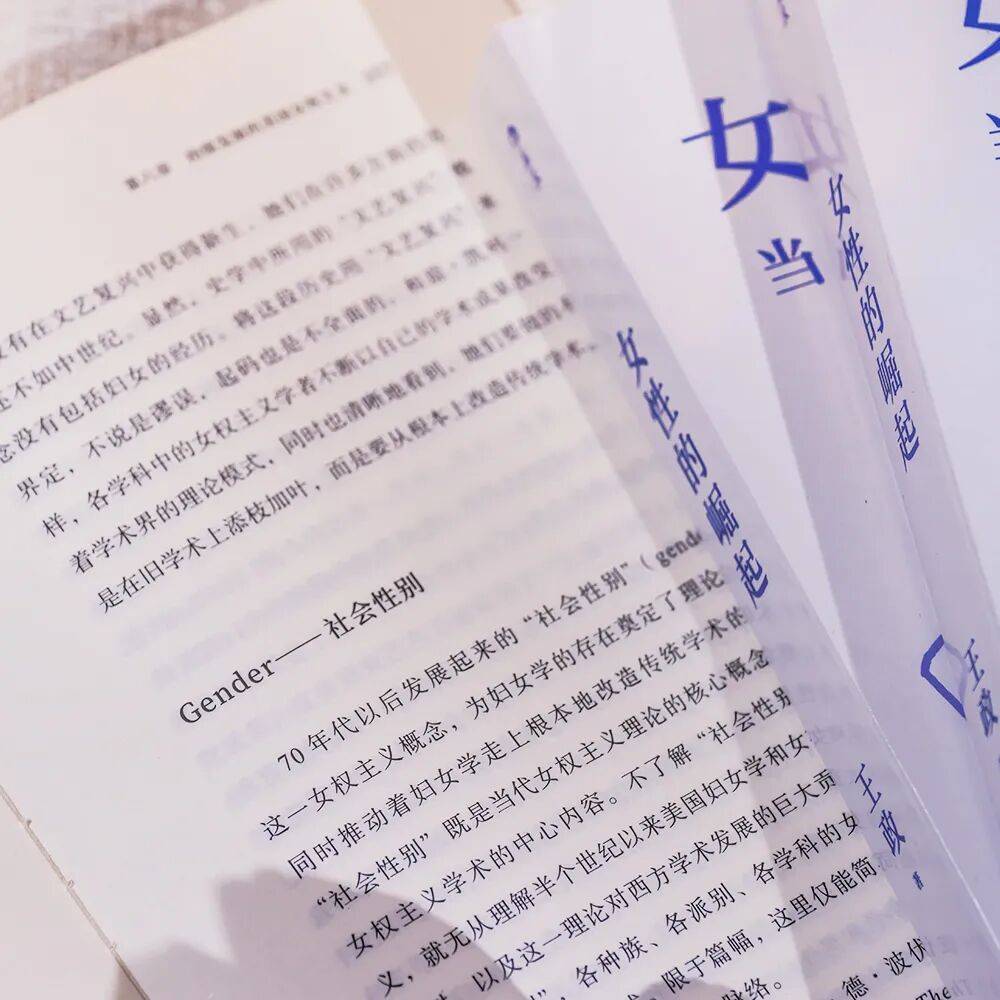 有在文艺复兴中获得新生，她们在许多方面的
还不如中世纪。显然，史学中所用的“文艺复兴”概
念没有包括妇女的经历。将这段历史用“文艺复兴”来
界定，不说是谬误，起码也是不全面的。
样，各学科中的女权主义学者不断以自己的学术成果改变
着学术界的理论模式，同时也清晰地看到，她们要做的
是在旧学术上添枝加叶，而是要从根本上改造传统学术。
Gender——社会性别
70年代以后发展起来的“社会性别”（gende
这一女权主义概念，为妇女学的存在奠定了理论
同时推动着妇女学走上根本地改造传统学术的
“社会性别”既是当代女权主义理论的核心概念
女权主义学术的中心内容。不了解“社会性别
义，就无从理解半个世纪以来美国妇女学和女
以及这一理论对西方学术发展的巨大贡
各种族、各派别、各学科的女
限于篇幅，这里仅能简
脉络。
德·波伏
The
女性的崛起
王政 著
女
当
女性的崛起
王政